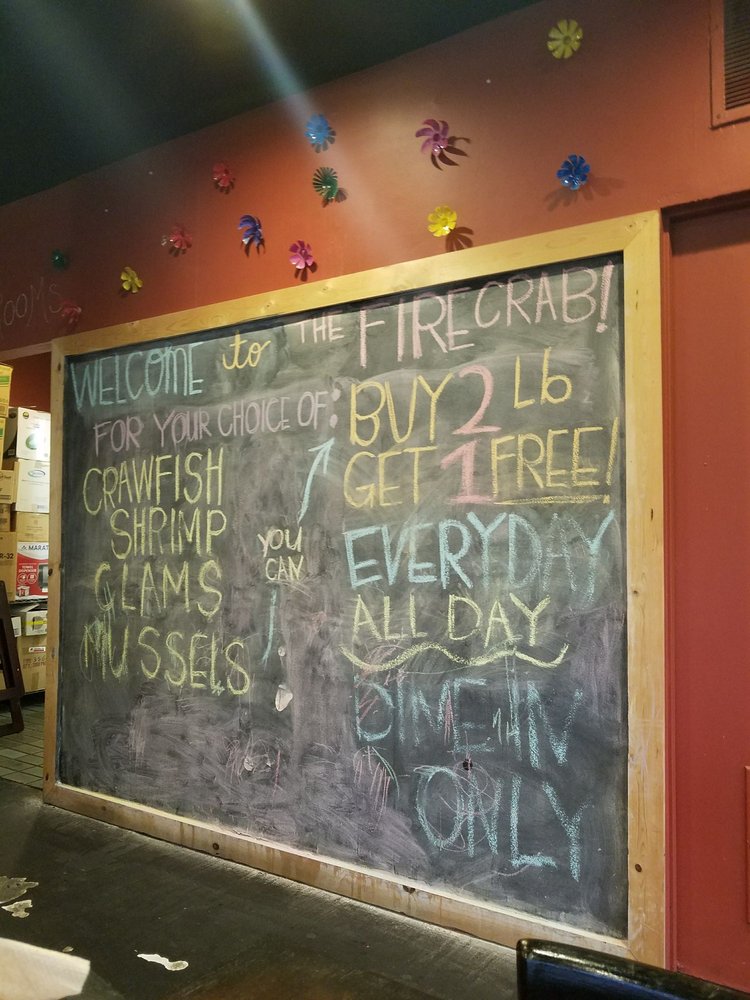 WELCOME to THE FIRECRAB!
FOR YOUR CHOICE OF:
CRAWFISH
SHRIMP
CLAMS
MUSSELS
YOU
CAN
BUY 2 Lb
GET 1 FREE!
EVERYDAY
ALL DAY
DINE-IN
ONLY
ROOMS
MARAT
R-32